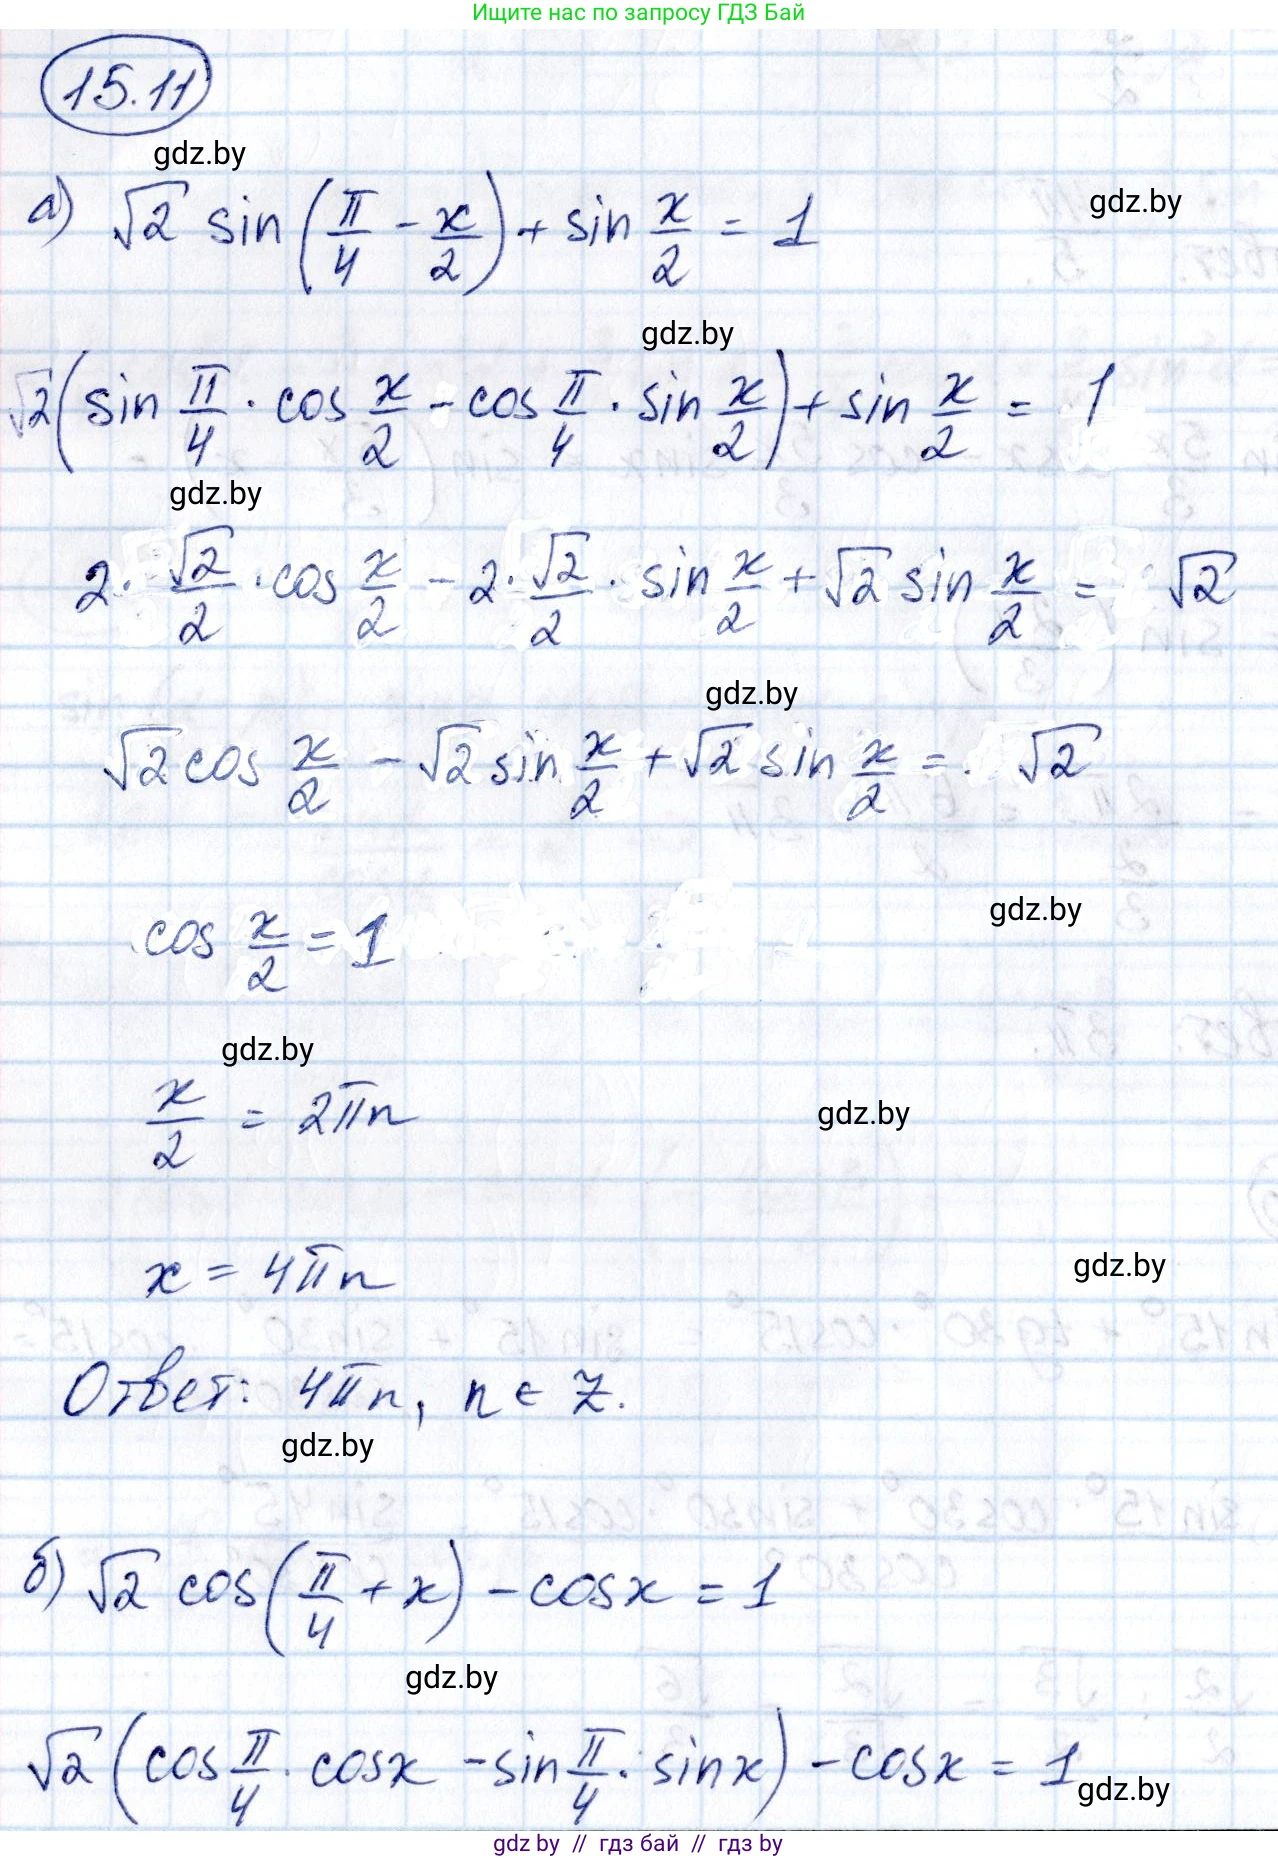 Ищите нас по запросу ГДЗ Бай
15.11
gdz.by
а) √2 sin(π/4 - x/2) + sin x/2 = 1
gdz.by
gdz.by
√2(sin π/4 · cos x/2 - cos π/4 · sin x/2) + sin x/2 = 1
gdz.by
2 · √2/2 · cos x/2 - 2 · √2/2 · sin x/2 + √2 sin x/2 = √2
gdz.by
√2 cos x/2 - √2 sin x/2 + √2 sin x/2 = √2
gdz.by
cos x/2 = 1
gdz.by
x/2 = 2πn
gdz.by
x = 4πn
gdz.by
Ответ: 4πn, n ∈ Z.
gdz.by
б) √2 cos(π/4 + x) - cosx = 1
gdz.by
√2 (cos π/4 · cosx - sin π/4 · sinx) - cosx = 1
gdz.by
gdz by // гдз бай // гдз by